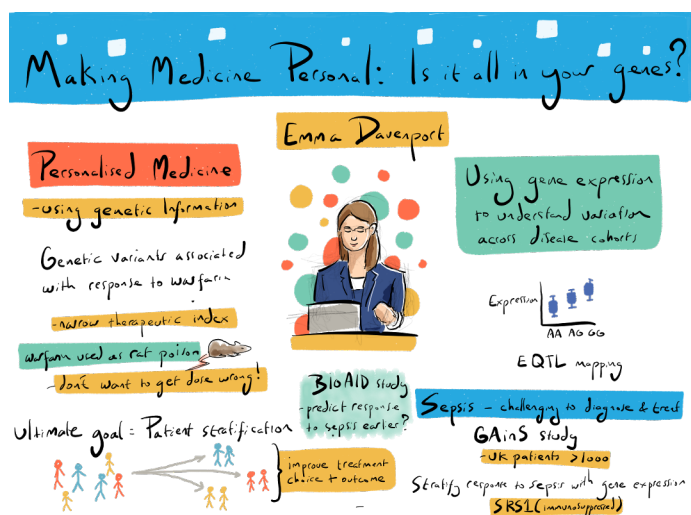 Making Medicine Personal: Is it all in your genes?
Emma Davenport
Personalised Medicine
-using genetic Information
Genetic variants associated
with response to warfarin
-narrow therapeutic index
warfarin used as rat poison
-don't want to get dose wrong!
Ultimate goal = Patient stratification
improve treatment
choice + outcome
BioAID study
-predict response
to sepsis earlier?
Using gene expression
to understand variation
across disease cohorts
Expression
AA AG GG
EQTL mapping
Sepsis - challenging to diagnose & treat
GAinS study
-UK patients >1000
Stratify response to sepsis with gene expression
SRS1 (immunosuppressed)